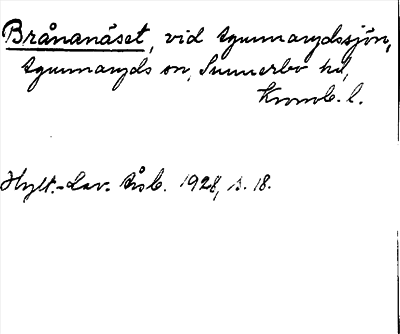 Brånanäset, vid Agunnarydssjön,
Agunnaryds sn, Sunnerbo hd,
Kronob. l.
Hylt.-Cav. Årsb. 1928, s. 18.